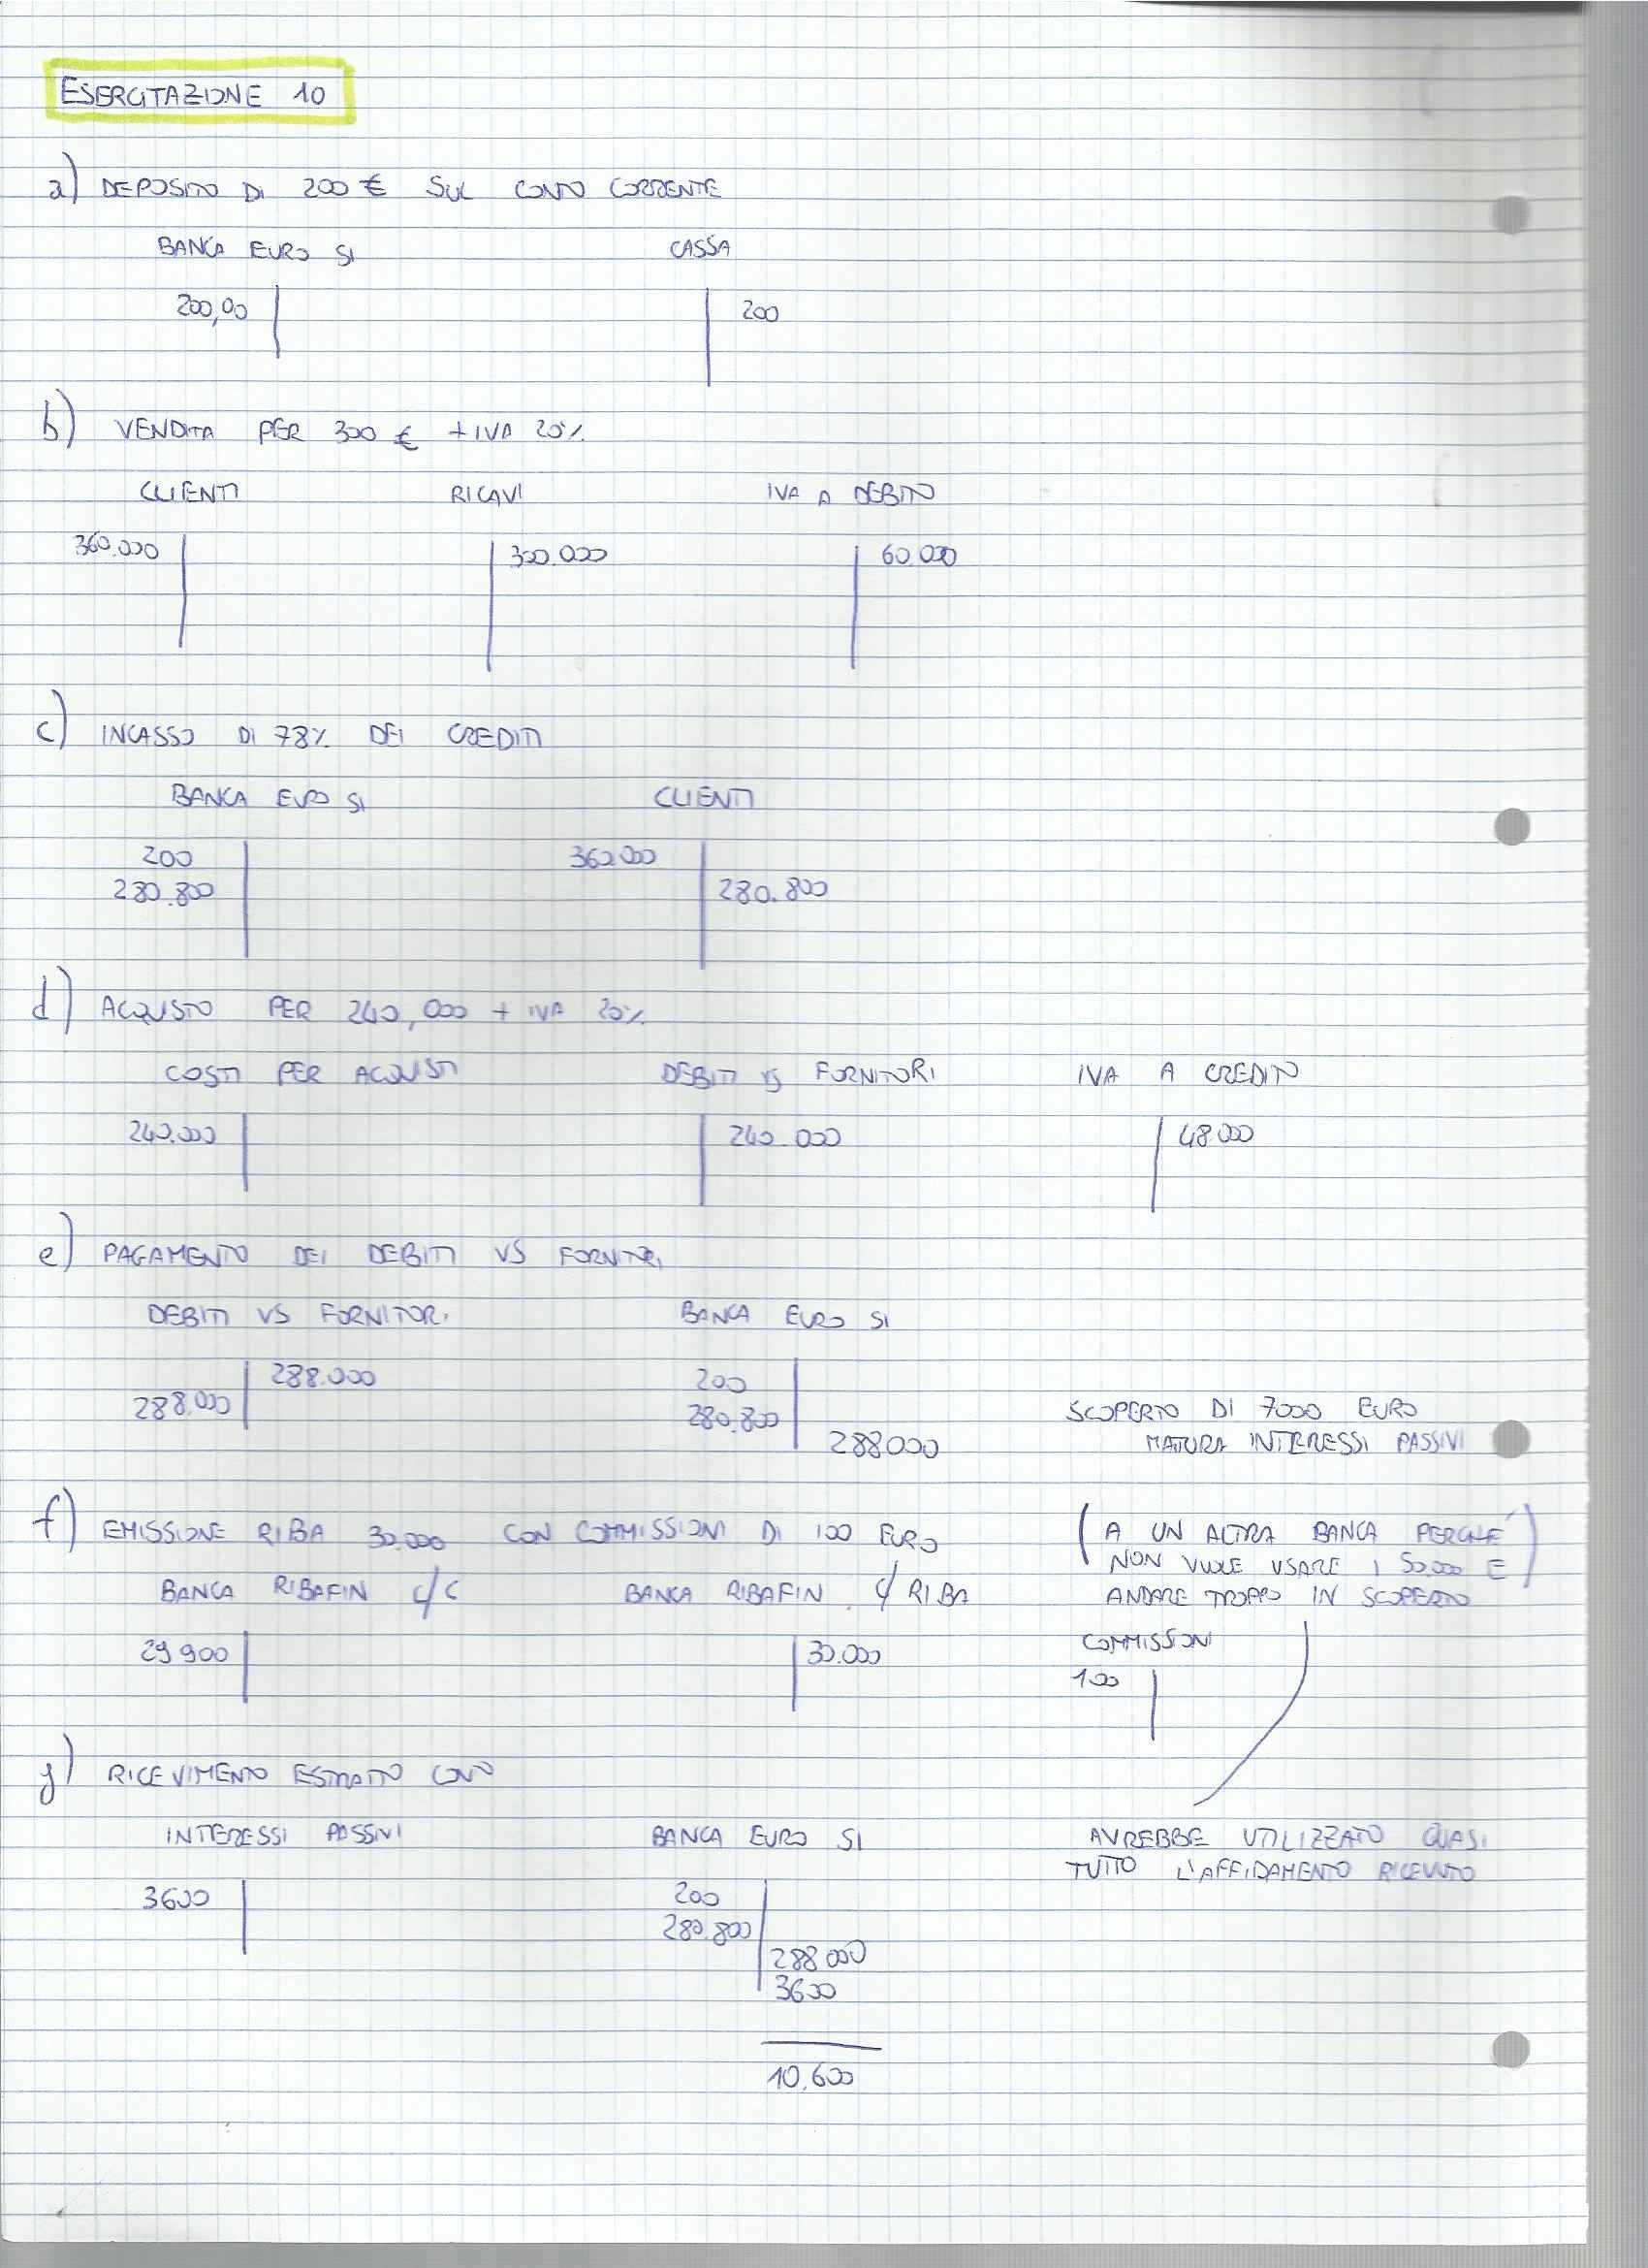 ESERCITAZIONE 10
a) DEPOSITO DI 200 € SUL CONTO CORRENTE
BANCA EURO SI CASSA
200,00 200
b) VENDITA PER 300 € + IVA 20%
CLIENTI RICAVI IVA A DEBITO
360.000 300.000 60.000
c) INCASSO DI 78% DEI CREDITI
BANCA EURO SI CLIENTI
200 360.000
280.800 280.800
d) ACQUISTO PER 240,000 + IVA 20%
COSTI PER ACQUISTI DEBITI VS FORNITORI IVA A CREDITO
240.000 240.000 48.000
e) PAGAMENTO DEI DEBITI VS FORNITORI
DEBITI VS FORNITORI BANCA EURO SI
288.000 200
288.000 280.800 SCOPERTO DI 7000 EURO
288000 MATURA INTERESSI PASSIVI
f) EMISSIONE RIBA 30.000 CON COMMISSIONI DI 100 EURO (A UN ALTRA BANCA PERCHE'
NON VUOLE USARE I 50.000 E)
BANCA RIBAFIN C/C BANCA RIBAFIN C/ RIBA ANDARE TROPPO IN SCOPERTO
29 900 30.000 COMMISSIONI
100
g) RICEVIMENTO ESTRATTO CONTO
INTERESSI PASSIVI BANCA EURO SI AVREBBE UTILIZZATO QUASI
TUTTO L'AFFIDAMENTO RICEVUTO
3600 200
280.800
288 000
3600
10.600